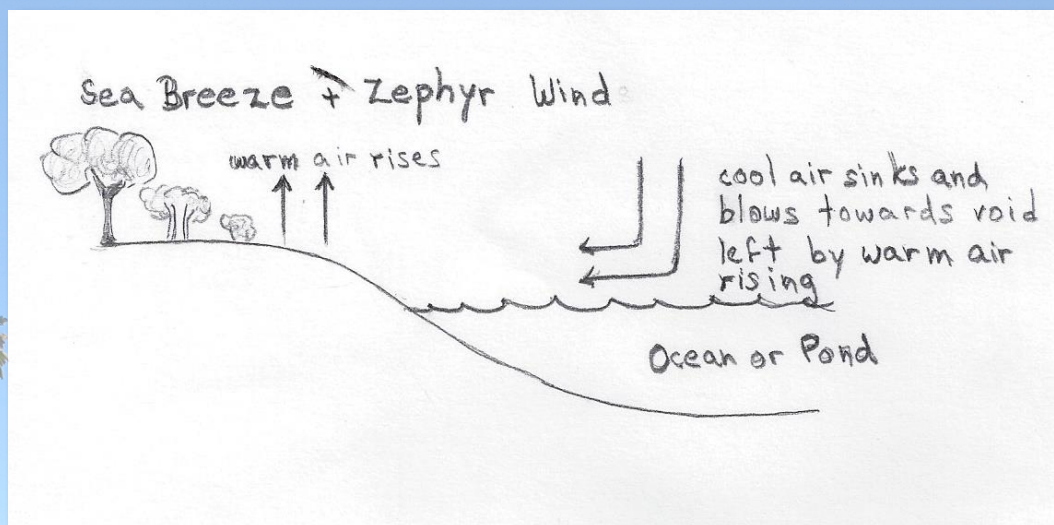 Sea Breeze + Zephyr Wind
warm air rises
cool air sinks and
blows towards void
left by warm air
rising
Ocean or Pond